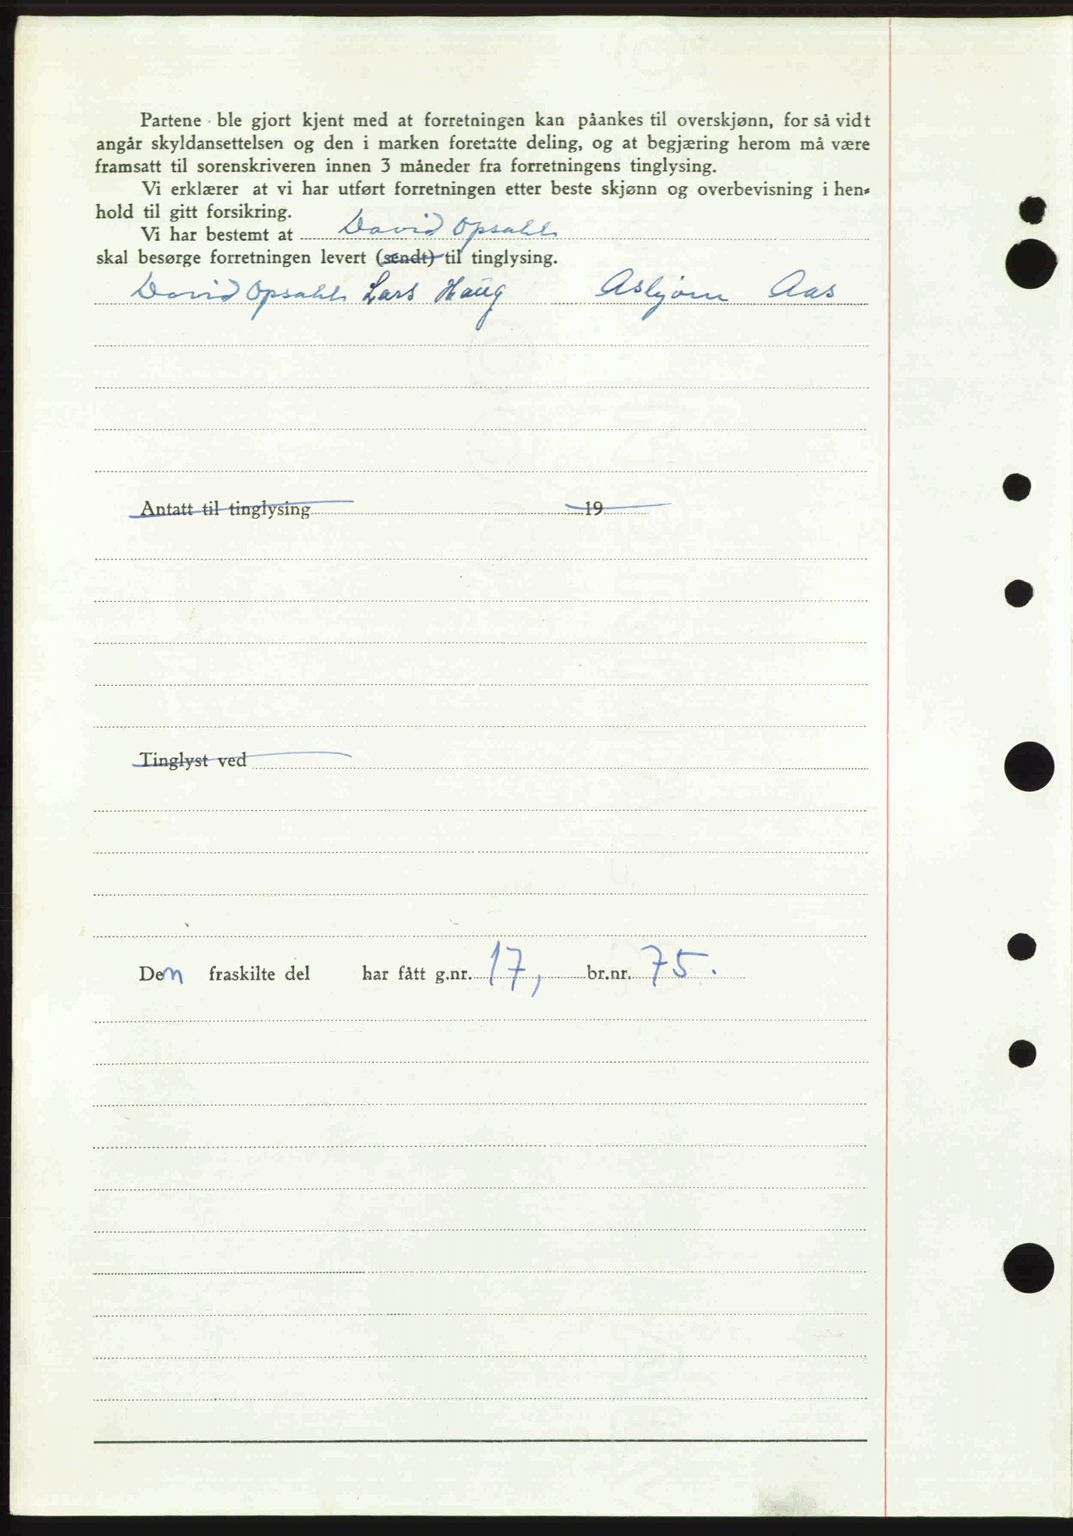 Partene ble gjort kjent med at forretningen kan påankes til overskjønn, for så vidt
angår skyldansettelsen og den i marken foretatte deling, og at begjæring herom må være
framsatt til sorenskriveren innen 3 måneder fra forretningens tinglysing.
Vi erklærer at vi har utført forretningen etter beste skjønn og overbevisning i hen-
hold til gitt forsikring.
Vi har bestemt at David Opsahl
skal besørge forretningen levert (sendt) til tinglysing.
David Opsahl Lars Haug Asbjørn Aas
Antatt til tinglysing 19
Tinglyst ved
Den fraskilte del har fått g.nr. 17, br.nr. 75.